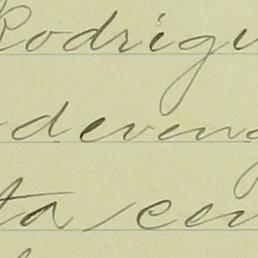 Rodrigu
deveng
ta cen